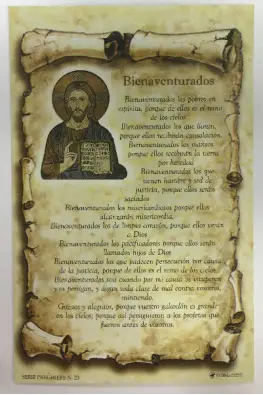 Bienaventurados
Bienaventurados los pobres en
espíritu, porque de ellos es el reino
de los cielos
Bienaventurados los que lloran,
porque ellos recibirán consolación.
Bienaventurados los mansos,
porque ellos recibirán la tierra
por heredad
Bienaventurados los que
tienen hambre y sed de
justicia, porque ellos serán
saciados
Bienaventurados los misericordiosos porque ellos
alcanzarán misericordia.
Bienaventurados los de limpio corazón, porque ellos verán
a Dios
Bienaventurados los pacificadores porque ellos serán
llamados hijos de Dios
Bienaventurados los que padecen persecución por causa
de la justicia, porque de ellos es el reino de los cielos.
Bienaventurados sois cuando por mi causa os vituperen
y os persigan, y digan toda clase de mal contra vosotros,
mintiendo.
Gozaos y alegraos, porque vuestro galardón es grande
en los cielos; porque así persiguieron a los profetas que
fueron antes de vosotros.
SERIE PERGAMINO N. 23